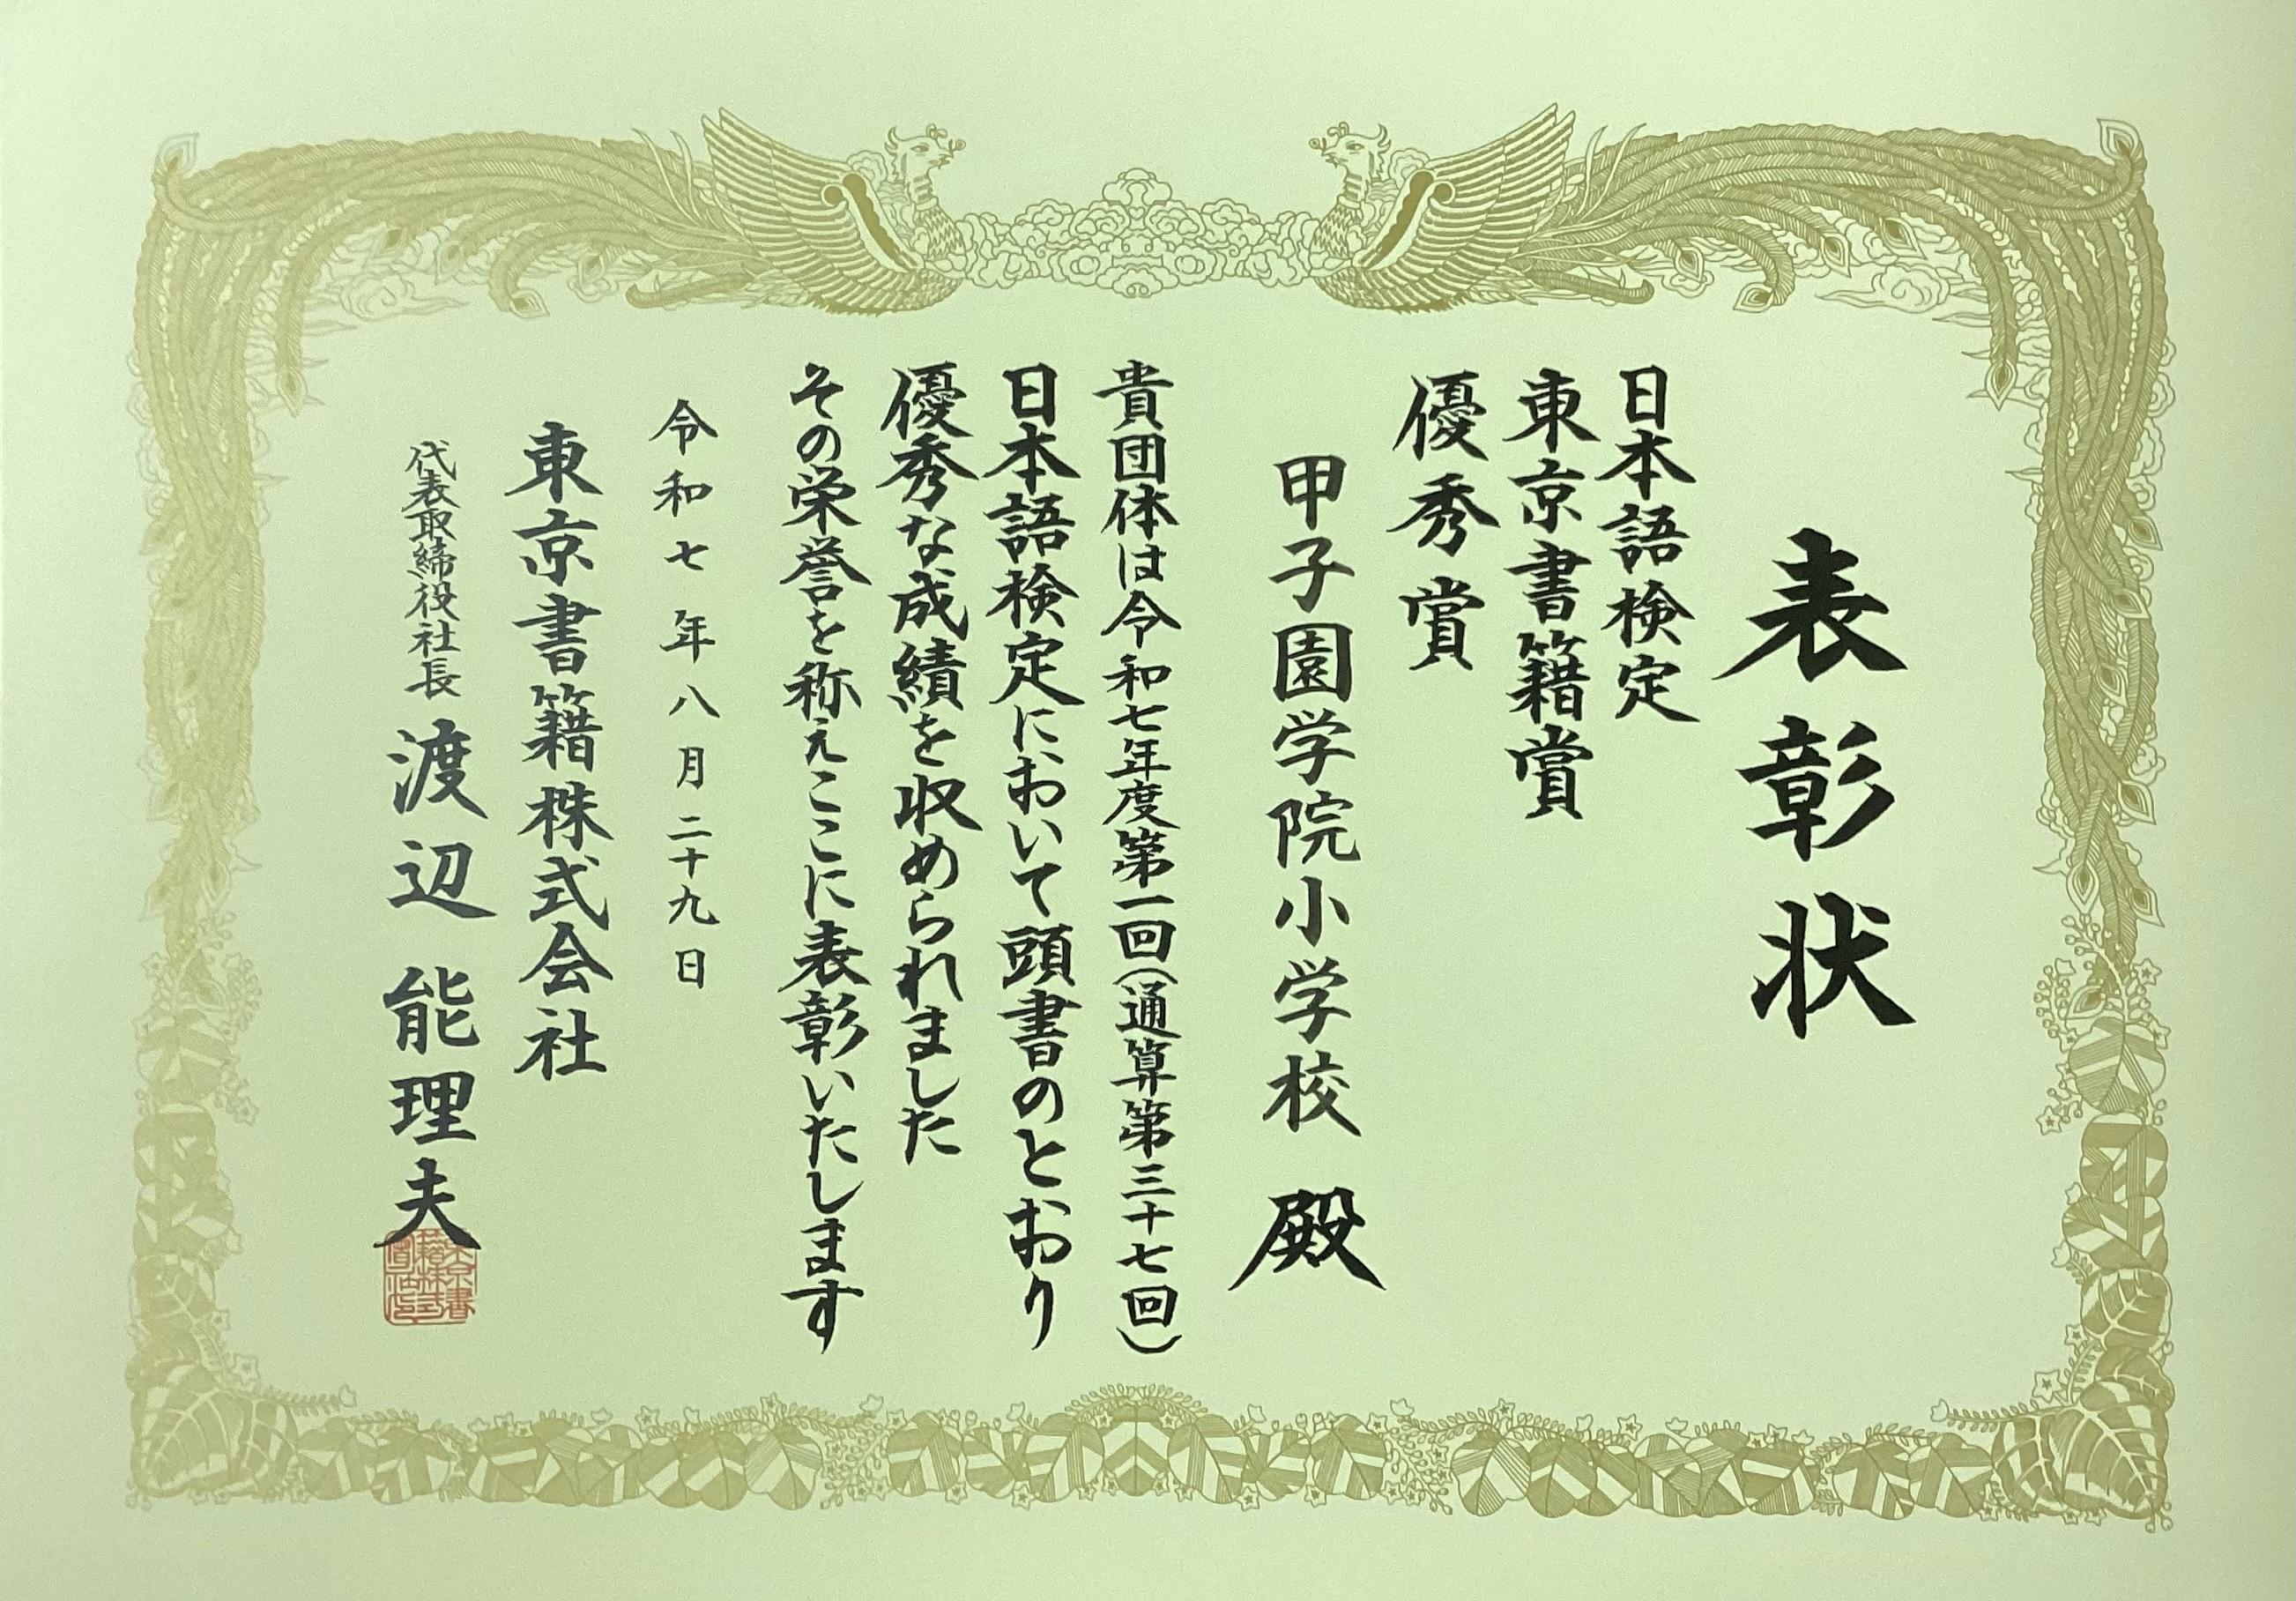 表彰状
日本語検定
東京書籍賞
優秀賞
甲子園学院小学校 殿
貴団体は令和七年度第一回(通算第三十七回)
日本語検定において頭書のとおり
優秀な成績を収められました
その栄誉を称えここに表彰いたします
令和七年八月二十九日
東京書籍株式会社
代表取締役社長 渡辺能理夫